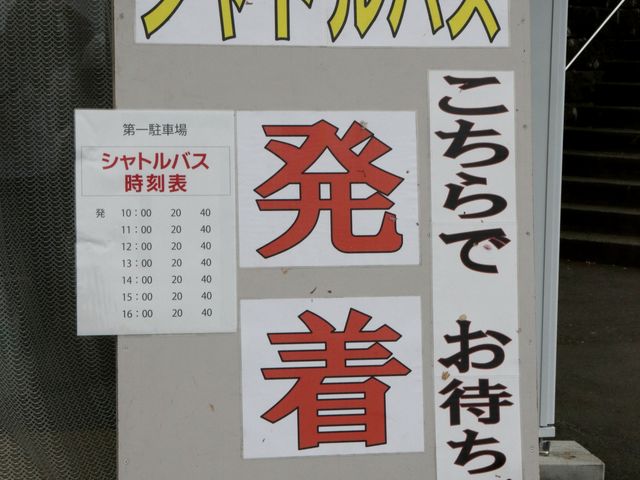 シャトルバス
第一駐車場
シャトルバス
時刻表
発 10:00 20 40
11:00 20 40
12:00 20 40
13:00 20 40
14:00 20 40
15:00 20 40
16:00 20 40
発
着
こちらで お待ち